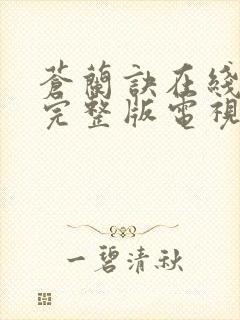 蒼蘭訣在綫
完整版電視
一碧清秋